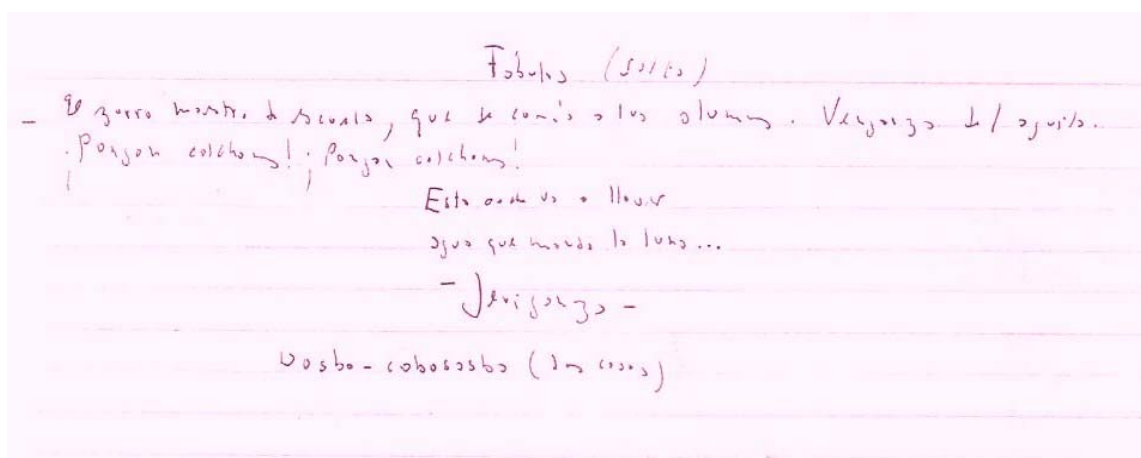 Fábulas (Salta)
- El zorro maestro de escuela, que se comía a los alumnos. Venganza del águila.
¡Pongan colchones! ¡Pongan colchones!
Esta noche va a llover
agua que manda la luna...
- Jerigonza -
Dosbo-cobosasba (dos cosas)